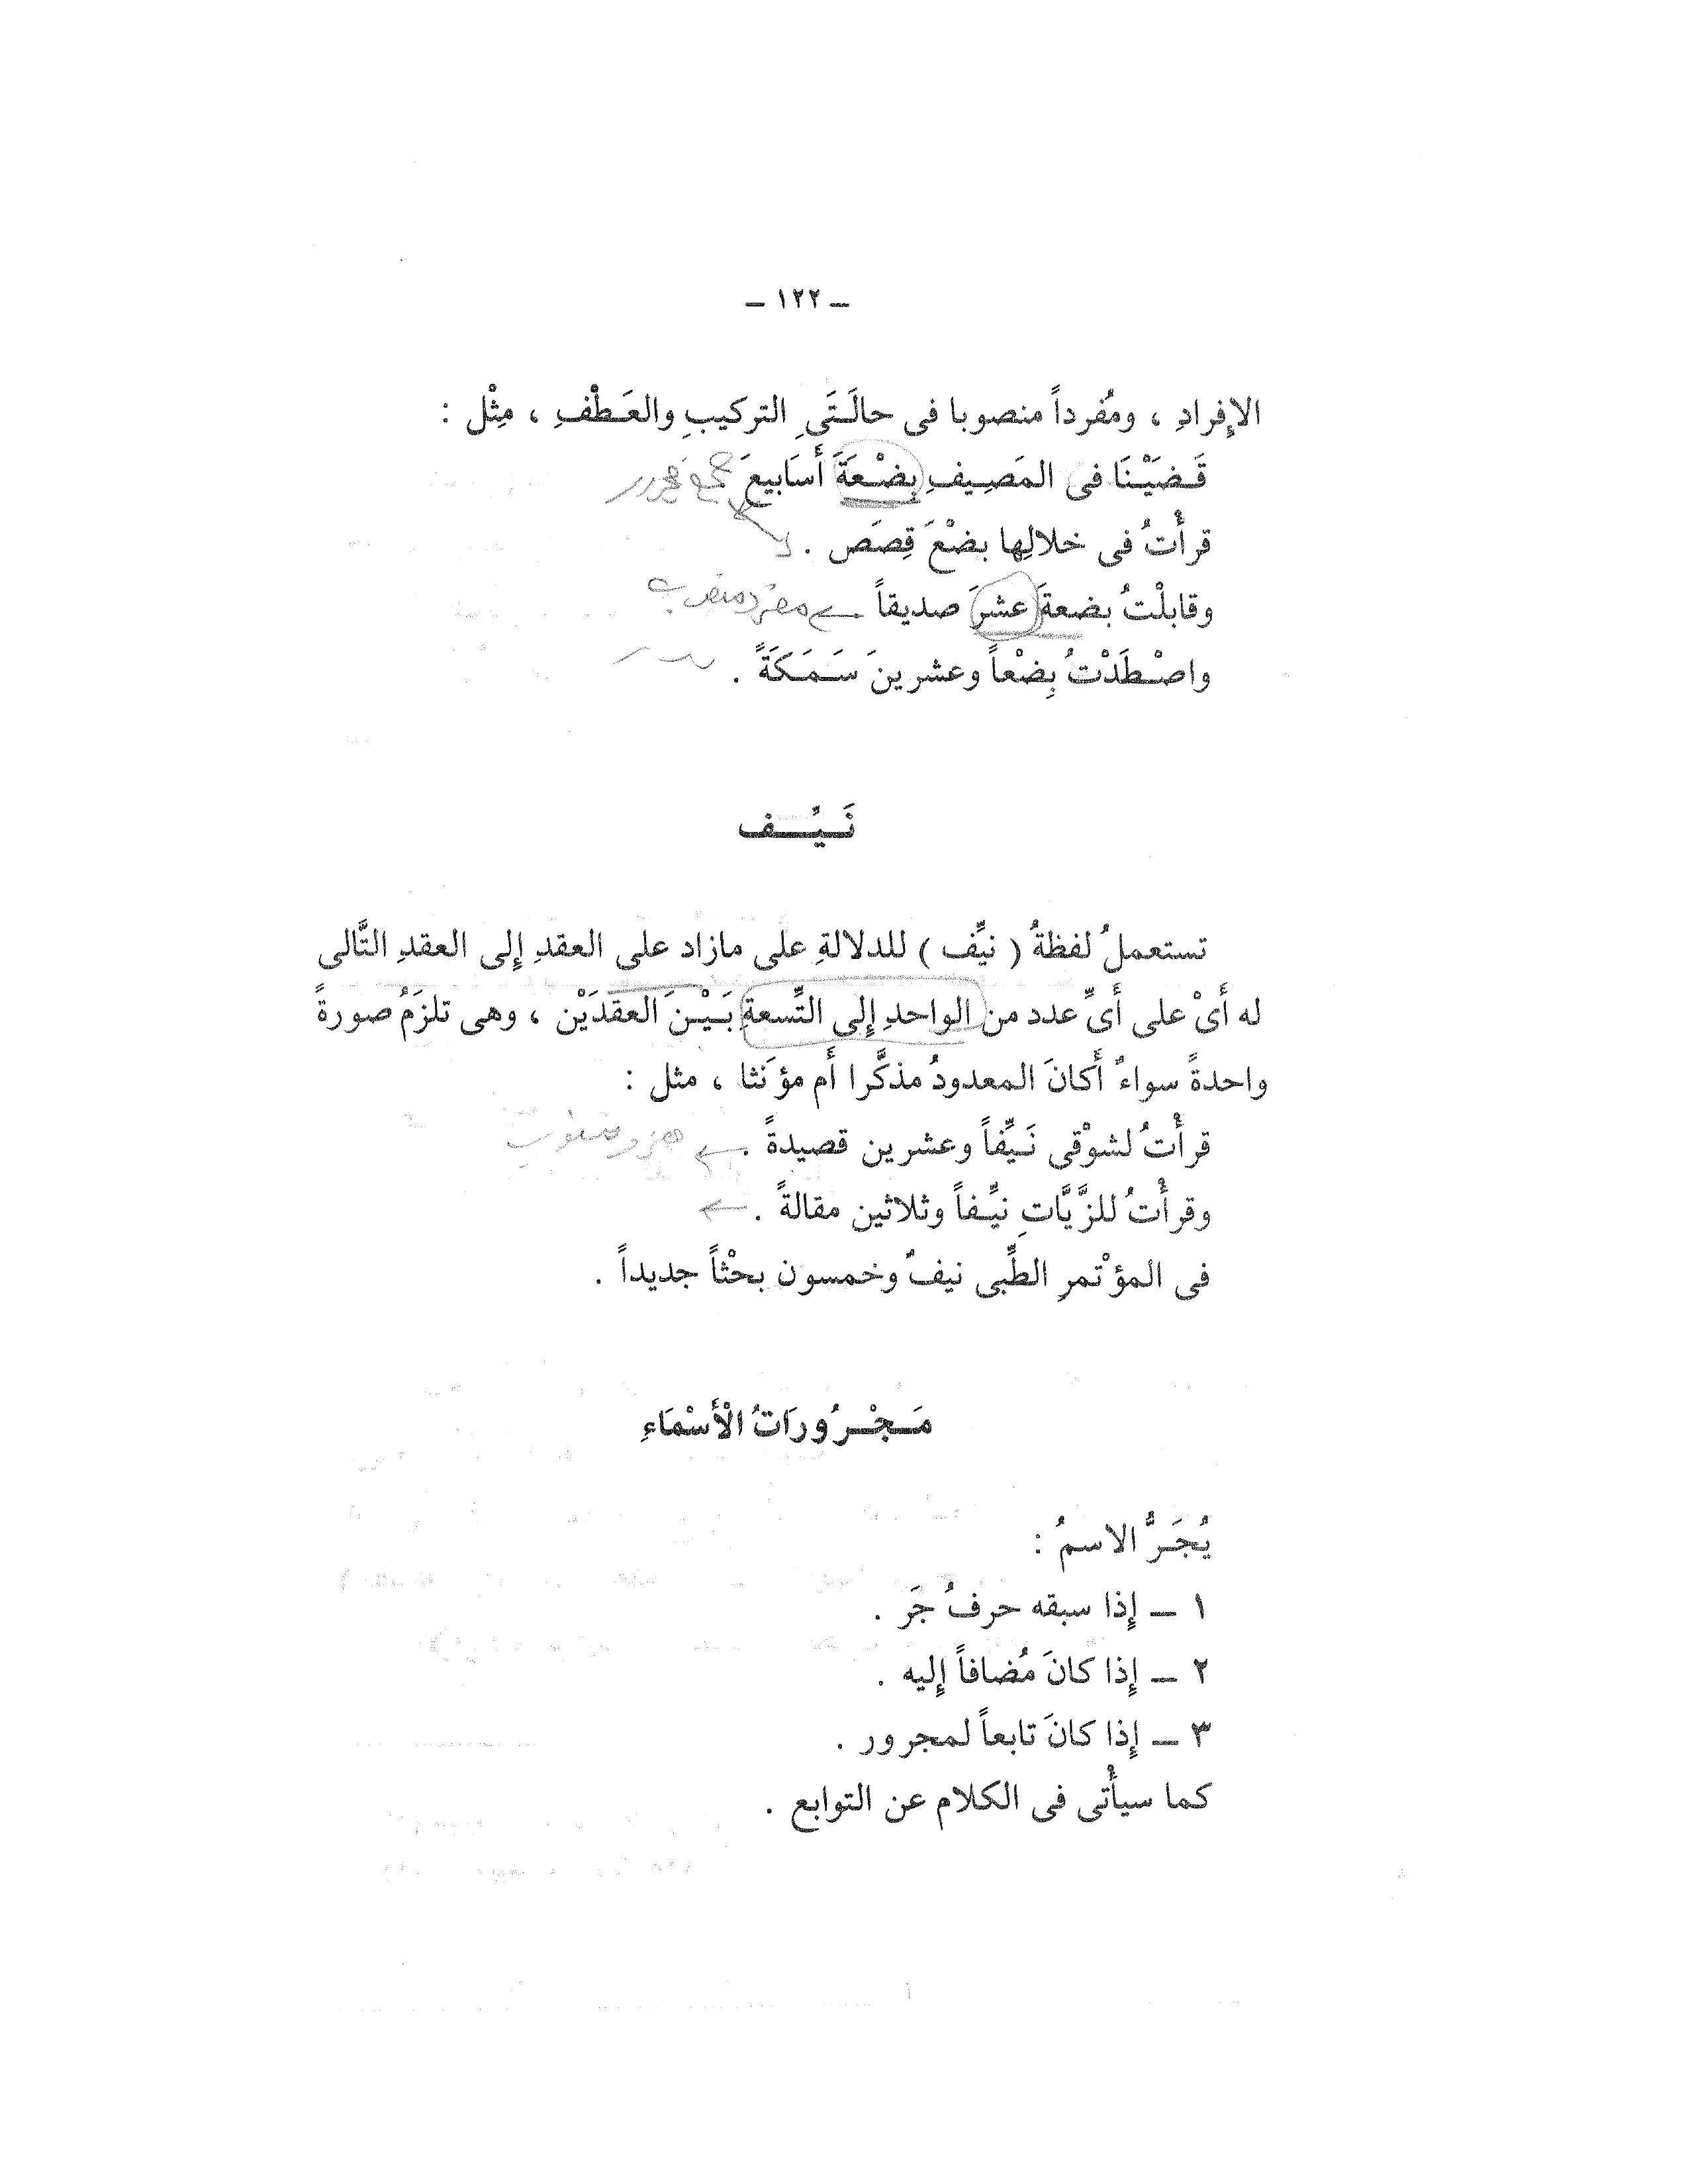 ــ ١٢٢ ــ
الإِفرادِ ، ومُفرداً منصوبا فى حالَتَىِ التركيبِ والعَطْفِ ، مِثْل :
قَضَيْنَا فى المَصِيفِ بِضْعَةَ أَسَابيعَ جمع مجرور
قرأْتُ فى خلالِها بضْعَ قِصَص .
وقابلْتُ بضعةَ عشرَ صديقاً مفرد منصوب
واصْطَدْتُ بِضْعاً وعشرينَ سَمَكَةً .
نَيِّف
تستعملُ لفظةُ ( نيِّف ) للدلالةِ على مازاد على العقدِ إِلى العقدِ التَّالى
له أَىْ على أَىِّ عدد من الواحدِ إِلى التِّسعةِ بَيْنَ العقدَيْن ، وهى تلزَمُ صورةً
واحدةً سواءٌ أَكانَ المعدودُ مذكَّرا أَم مؤنَثا ، مثل :
قرأْتُ لشوْقى نَيِّفاً وعشرين قصيدةً . ← مفرد منصوب
وقرأْتُ للزَّيَّاتِ نيِّفاً وثلاثين مقالةً . ←
فى المؤْتمرِ الطِّبى نيفٌ وخمسون بحْثاً جديداً .
مَجْرُورَاتُ الْأَسْمَاءِ
يُجَرُّ الاسمُ :
١ ــ إِذا سبقه حرفُ جَر .
٢ ــ إِذا كانَ مُضافاً إِليه .
٣ ــ إِذا كانَ تابعاً لمجرور .
كما سيأْتى فى الكلام عن التوابع .